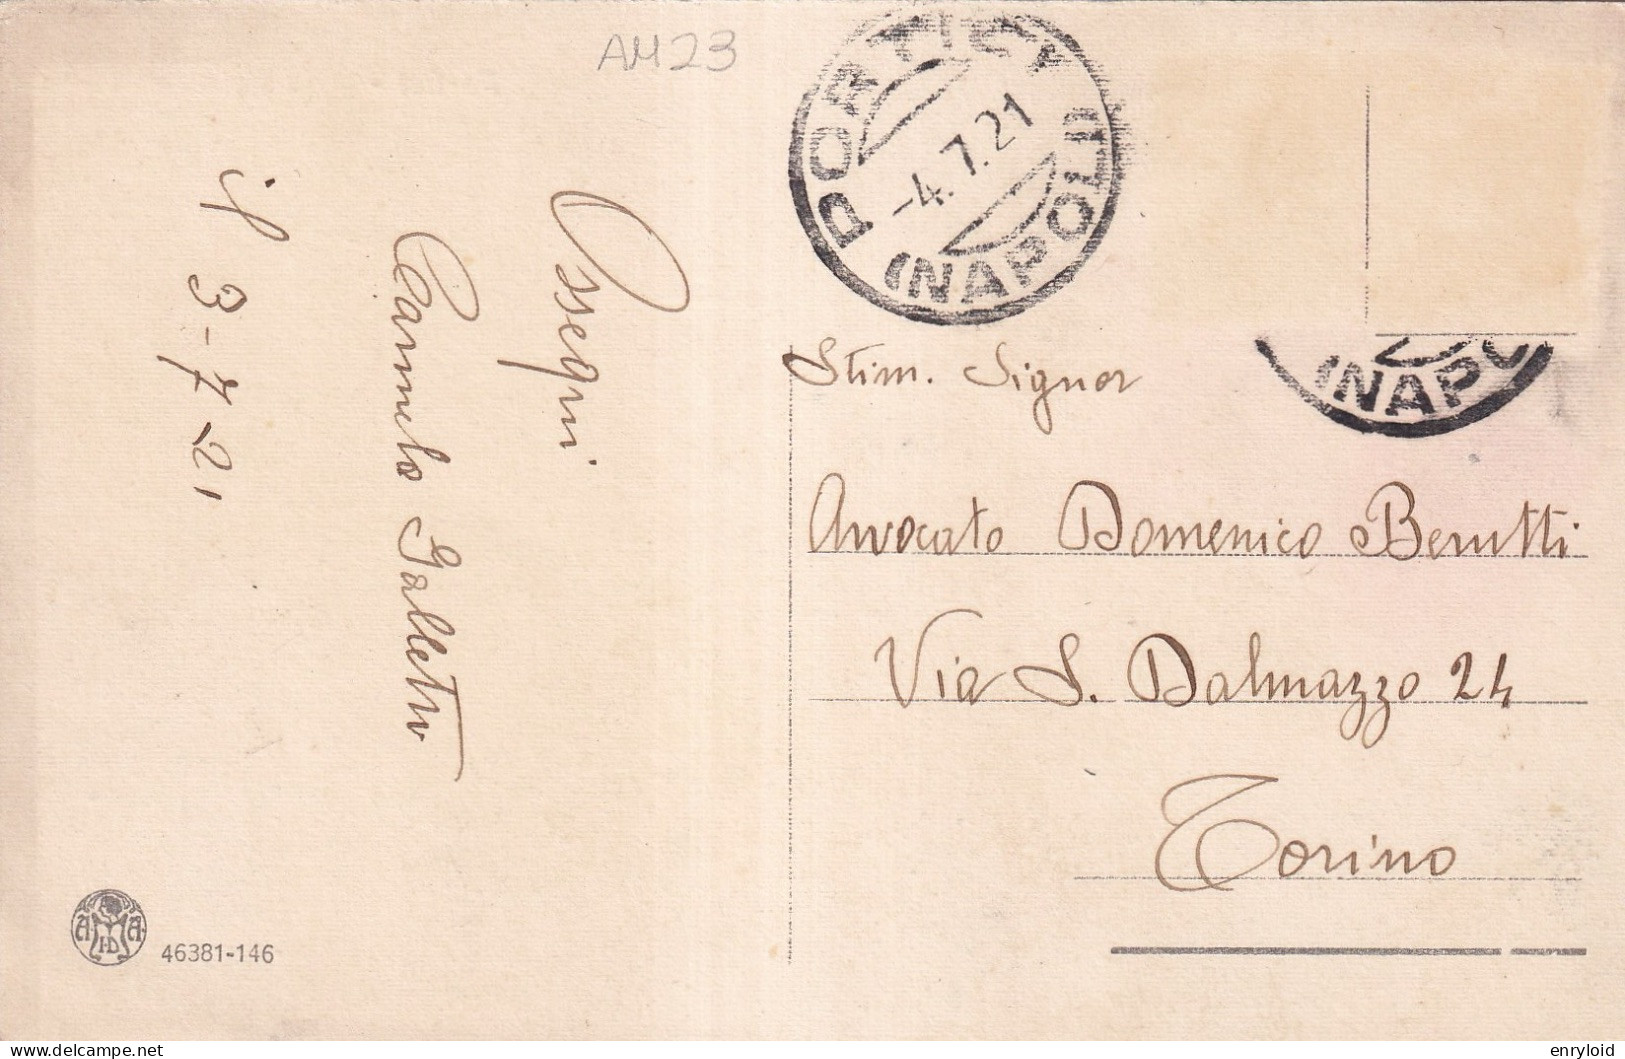 AM23
PORTICI
-4.7.21
(NAPOLI)
(NAPO
Ossequi
Carmelo Galletti
il 3-7-21
Stim. Signor
Avvocato Domenico Berutti
Via S. Dalmazzo 24
Torino
46381-146
delcampe.net
enryloid